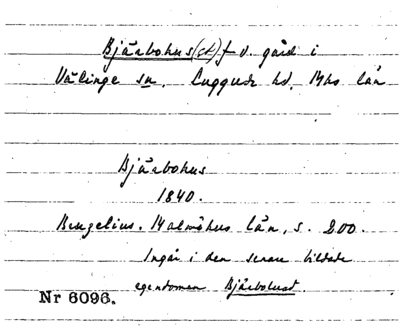 Bjärbohus (st.) f.d. gård i
Välinge sn. Luggude hd. Mhs län
Bjärbohus
1840.
Bengelius. Malmöhus län, s. 200.
Ingår i den senare bildade
egendomen Bjärbolund.
Nr 6096.